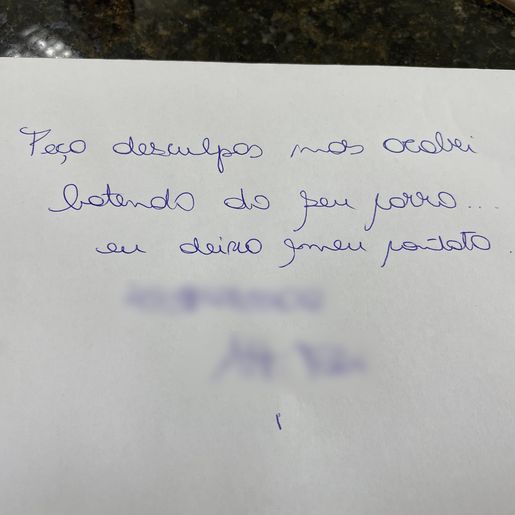 Peço desculpas mas acabei
batendo do seu carro...
eu deixo meu contato.